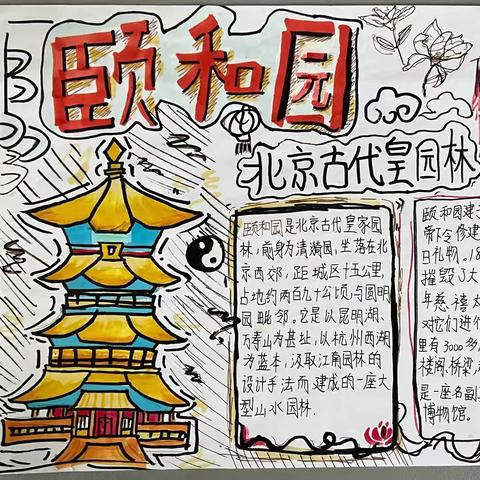 颐和园
北京古代皇园林
颐和园是北京古代皇家园
林,前身为清漪园,坐落在北
京西郊,距城区十五公里,
占地约两百九十公顷,与圆明
园毗邻。它是以昆明湖、
万寿山为基址,以杭州西湖
为蓝本,汲取江南园林的
设计手法而建成的一座大
型山水园林.
颐和园建
帝下令修建
日礼物。18
摧毁了大
年慈禧太
对它们进行
里有3000多
楼阁、桥梁,
是一座名副
博物馆。